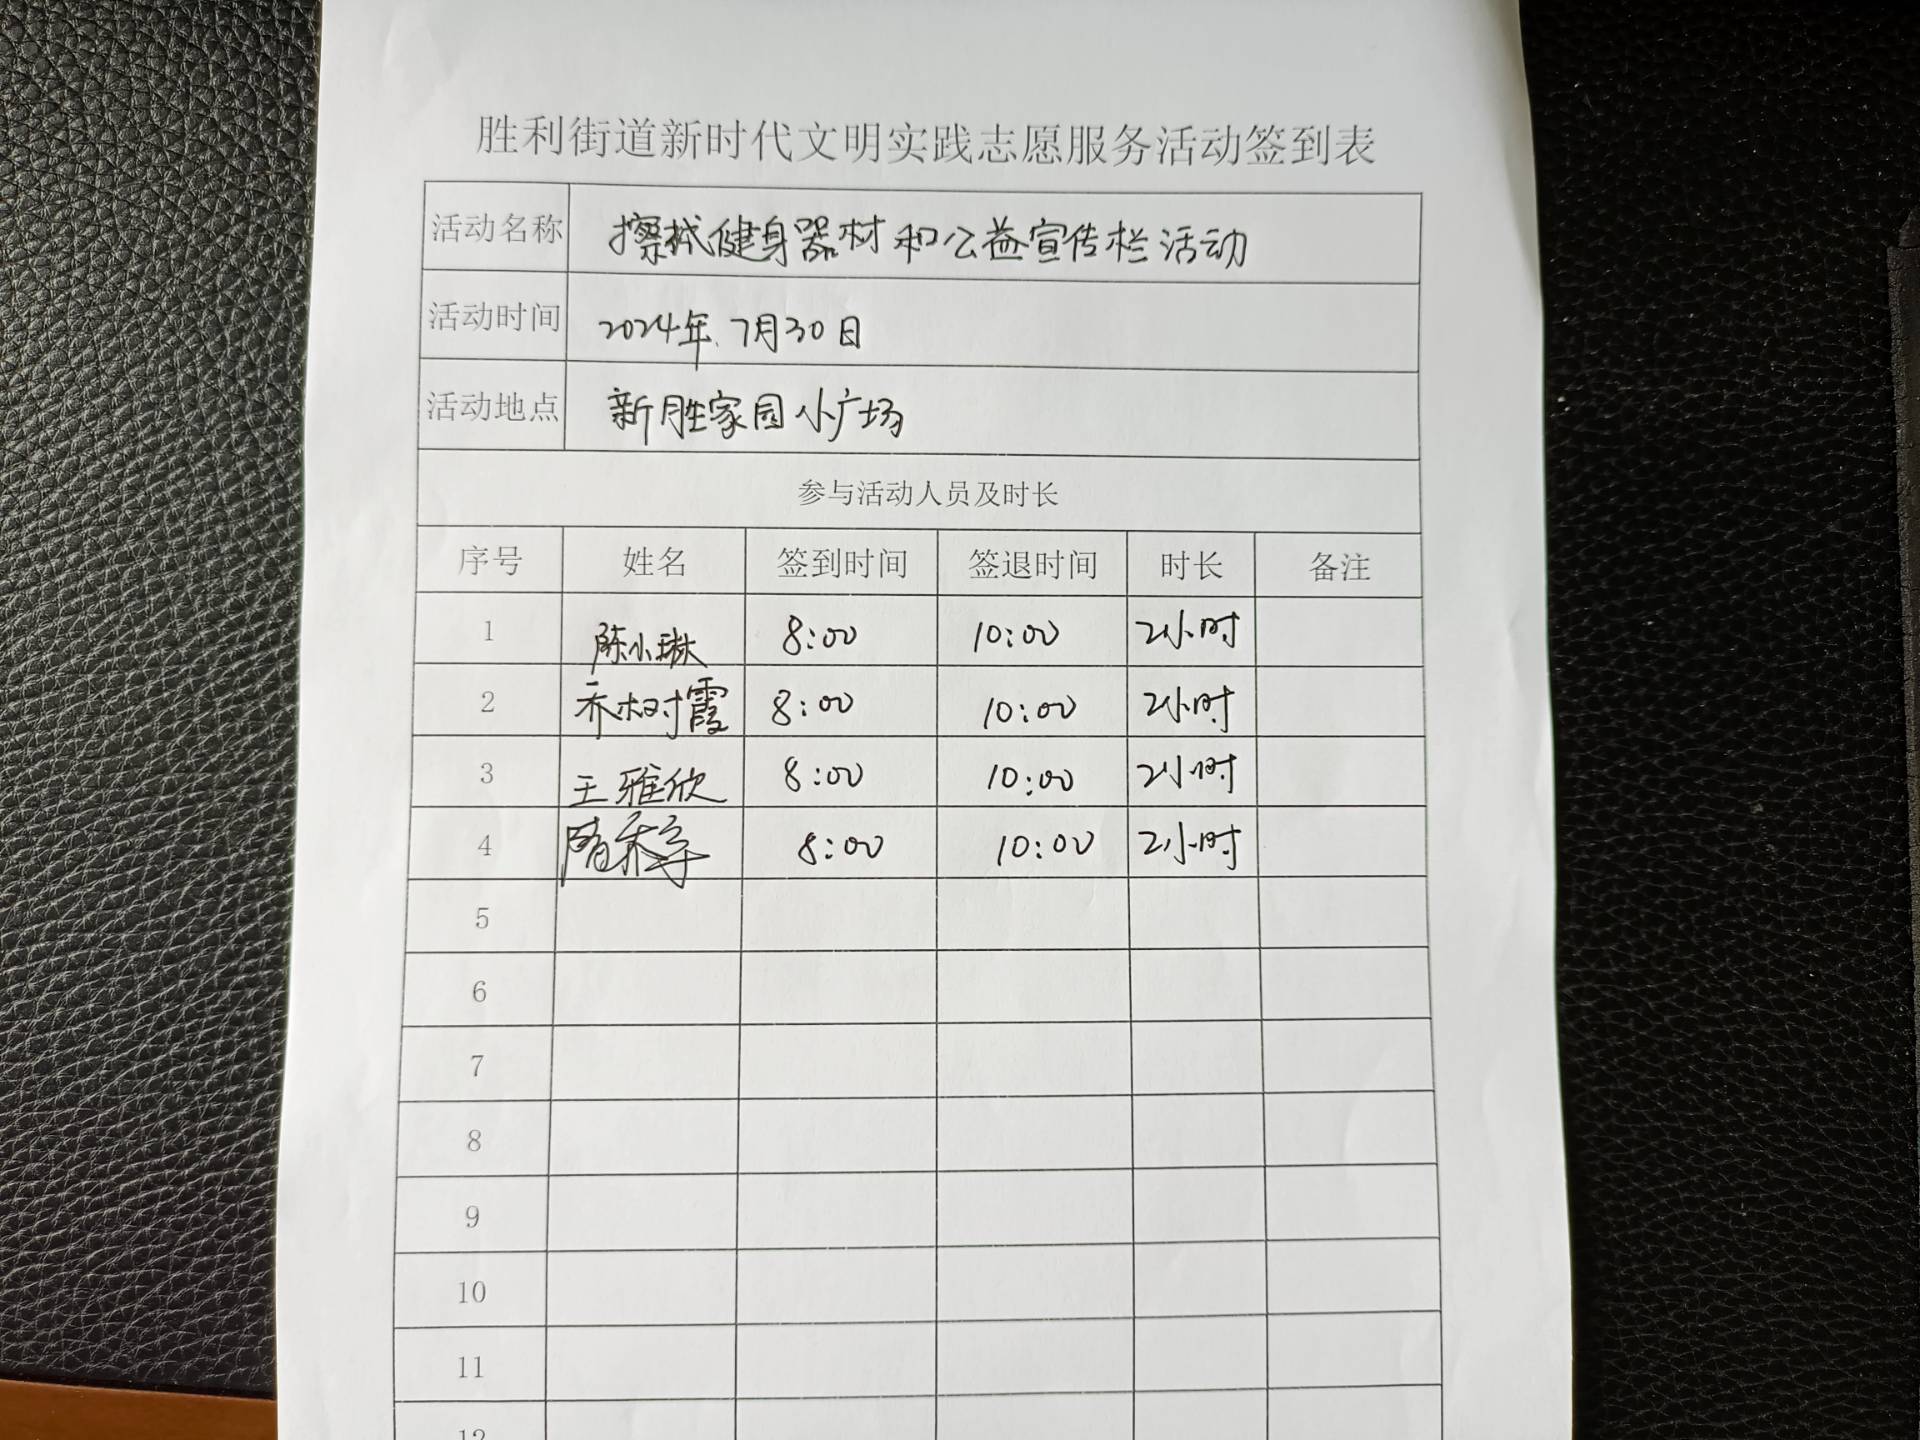 胜利街道新时代文明实践志愿服务活动签到表
活动名称 擦拭健身器材和公益宣传栏活动
活动时间 2024年.7月30日
活动地点 新胜家园小广场
参与活动人员及时长
序号 姓名 签到时间 签退时间 时长 备注
1 陈小琳 8:00 10:00 2小时
2 乔树霞 8:00 10:00 2小时
3 王雅欣 8:00 10:00 2小时
4 8:00 10:00 2小时
5
6
7
8
9
10
11
12